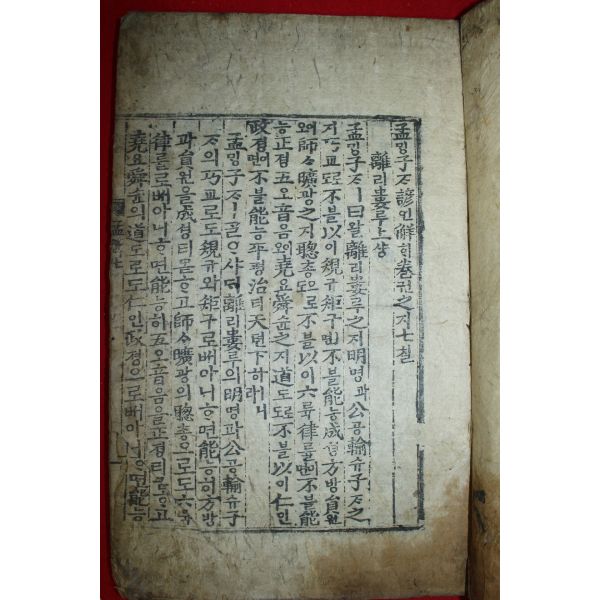 孟ᄆᆡᆼ子ᄌᆞ諺언解ᄒᆡ卷권之지七칠
離리婁루上샹
孟ᄆᆡᆼ子ᄌᆞㅣ曰왈離리婁루之지明명과公공輸슈子ᄌᆞ之
지巧교로도不블以이規규矩구ㅣ면不블能능成셩方방員원이
오師ᄉᆞ曠광之지聰총으로도不블以이六륙律률이면不블能
능正졍五오音음이오堯요舜슌之지道도로도不블以이仁인
政졍이면不블能능平평治티天텬下하ㅣ니라
孟ᄆᆡᆼ子ᄌᆞㅣᄀᆞᆯᄋᆞ샤ᄃᆡ離리婁루의明명과公공輸슈子
ᄌᆞ의巧교로도規규와矩구로ᄡᅥ아니ᄒᆞ면能능히方방
과員원을成셩티몯ᄒᆞ고師ᄉᆞ曠광의聰총으로도六륙
律률로ᄡᅥ아니ᄒᆞ면能능히五오音음을正졍티몯ᄒᆞ고
堯요舜슌의道도로도仁인政졍으로ᄡᅥ아니ᄒᆞ면能능